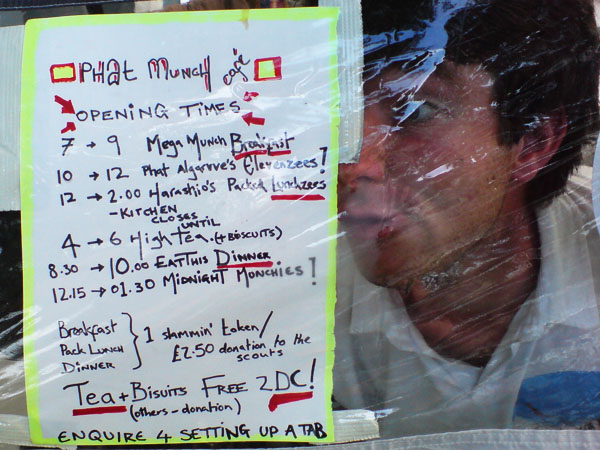 PHat MUNCH café
OPENING TIMES
7 → 9 Mega Munch Breakfast
10 → 12 Phat Algarrve's Elevenzees!
12 → 2.00 Harashio's Packed Lunchzees
- KITCHEN
CLOSES
UNTIL
4 → 6 High Tea. (+ BISCUITS)
8.30 → 10.00 EAT THIS DINNER
12.15 → 01.30 MIDNIGHT MUNCHIES!
Breakfast
Pack Lunch
DINNER
1 slammin' token/
£2.50 donation to the
scouts
Tea + Bisuits FREE 2 DC!
(others - donation)
ENQUIRE 4 SETTING UP A TAB